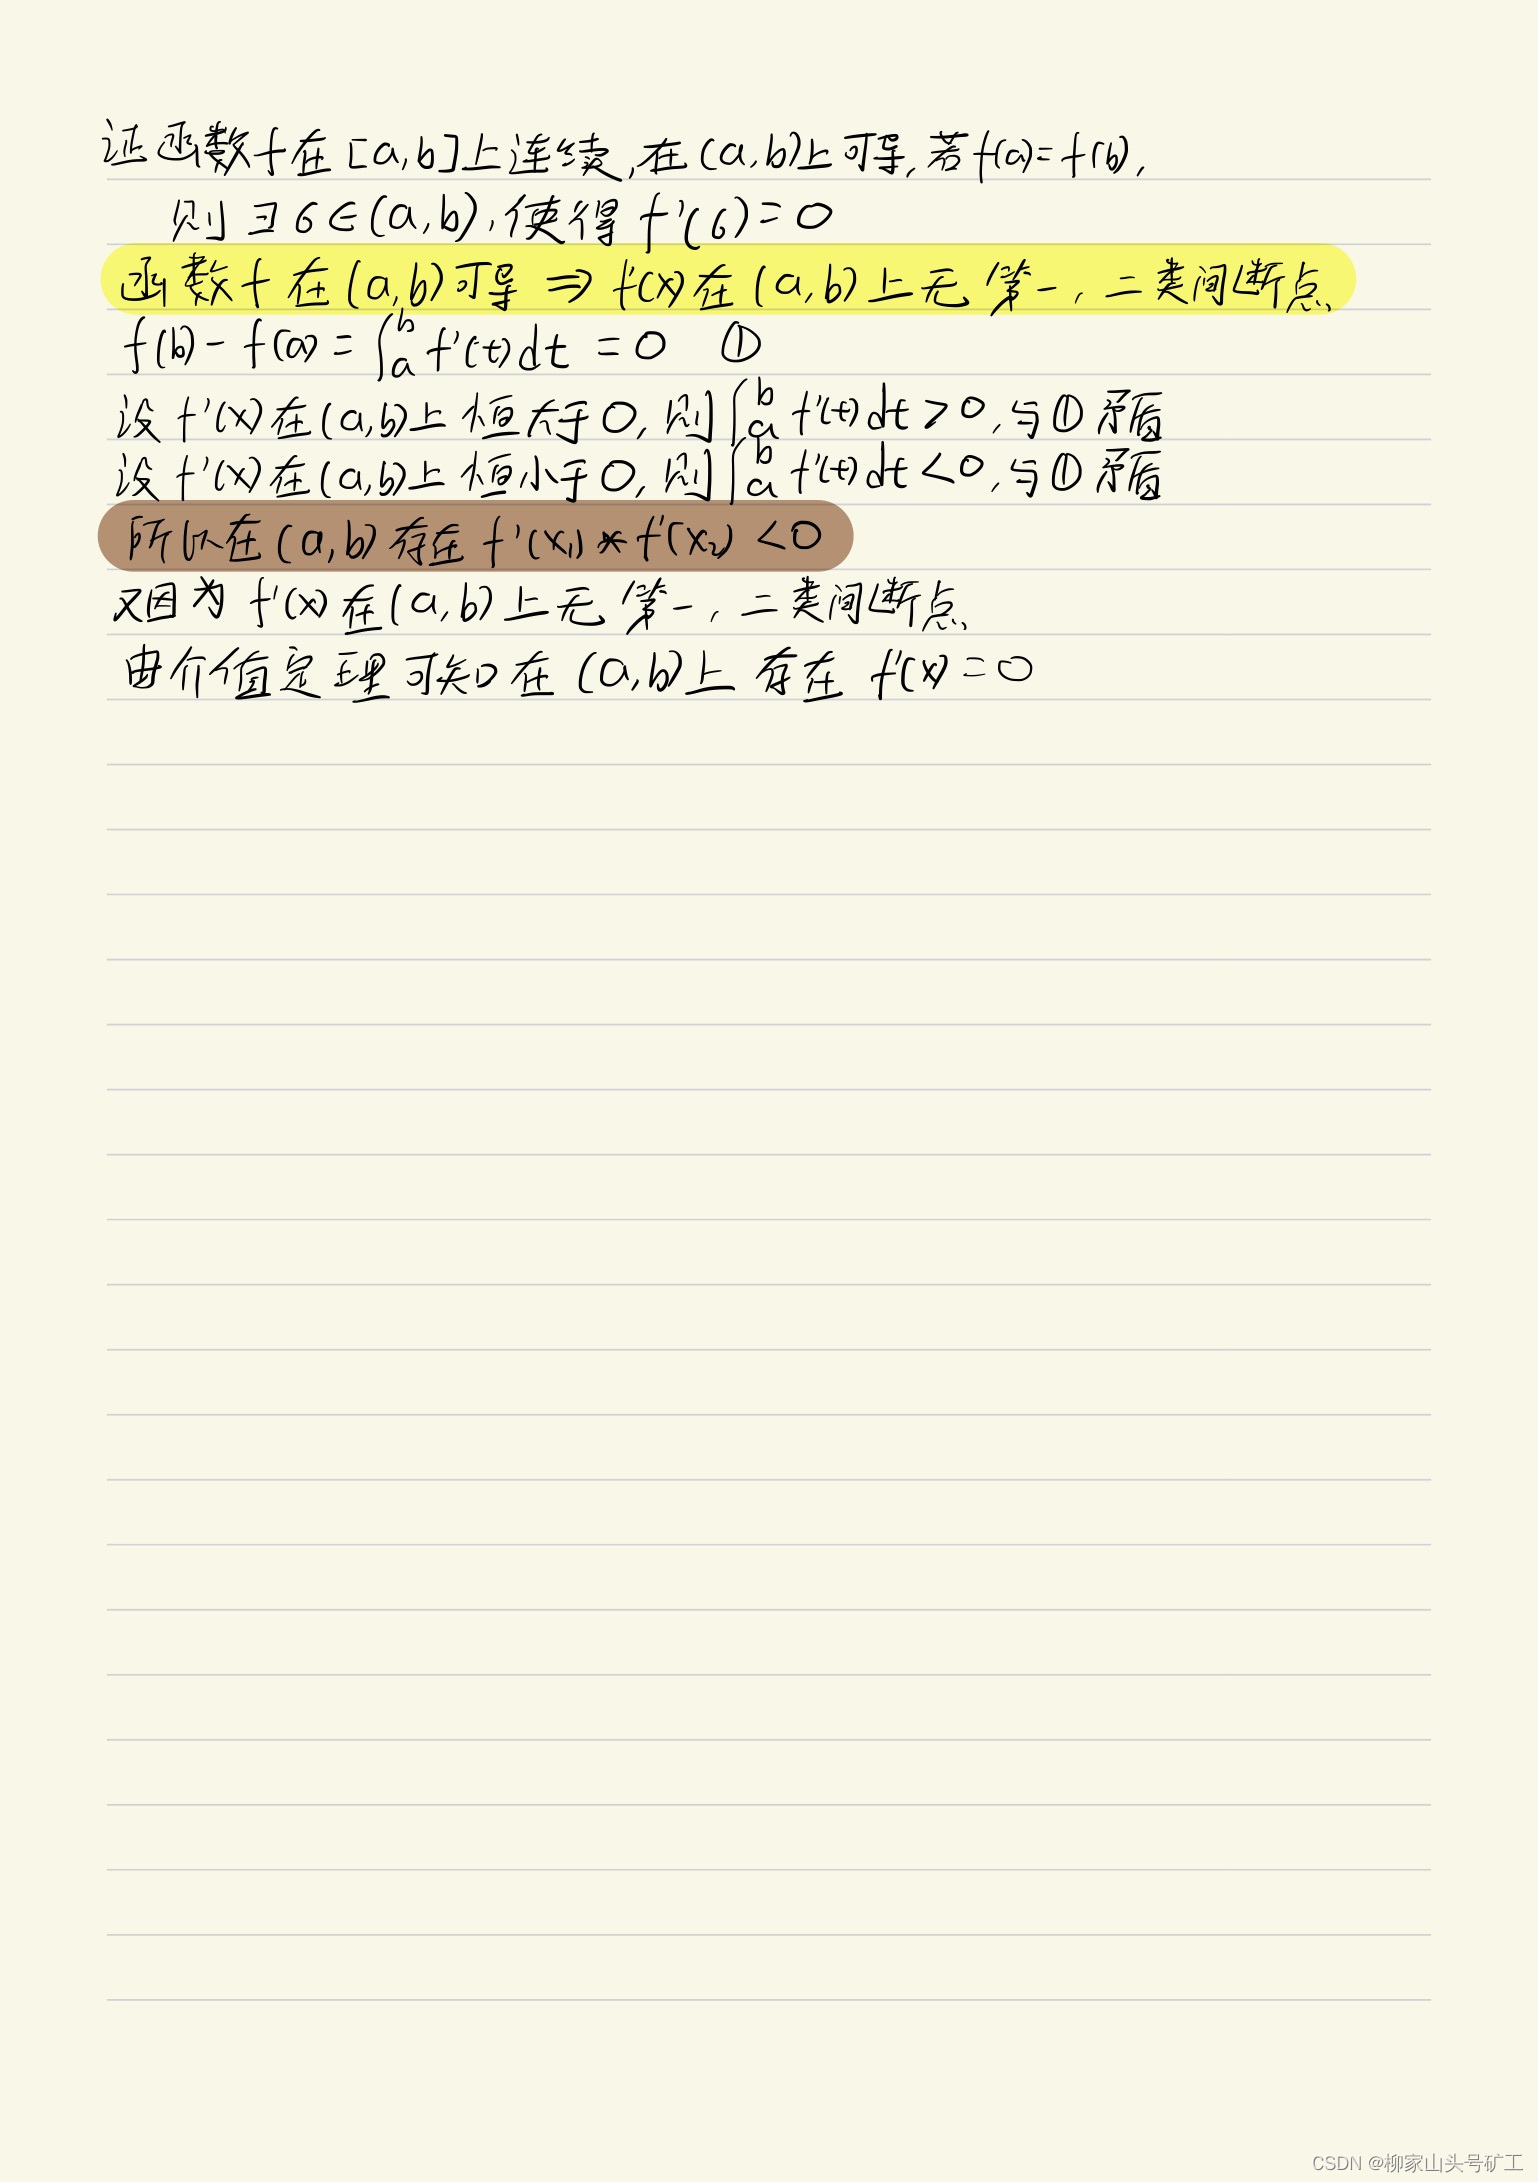 证函数f在[a,b]上连续,在(a,b)上可导,若f(a)=f(b),
则∃6∈(a,b),使得f'(6)=0
函数f在(a,b)可导⇒f'(x)在(a,b)上无第一,二类间断点、
f(b)-f(a)=∫_a^b f'(t)dt=0 ①
设f'(x)在(a,b)上恒大于0,则∫_a^b f'(t)dt>0,与①矛盾
设f'(x)在(a,b)上恒小于0,则∫_a^b f'(t)dt<0,与①矛盾
所以在(a,b)存在f'(x₁)*f'(x₂)<0
又因为f'(x)在(a,b)上无第一,二类间断点、
由介值定理可知在(a,b)上存在f'(x)=0
CSDN @柳家山头号矿工